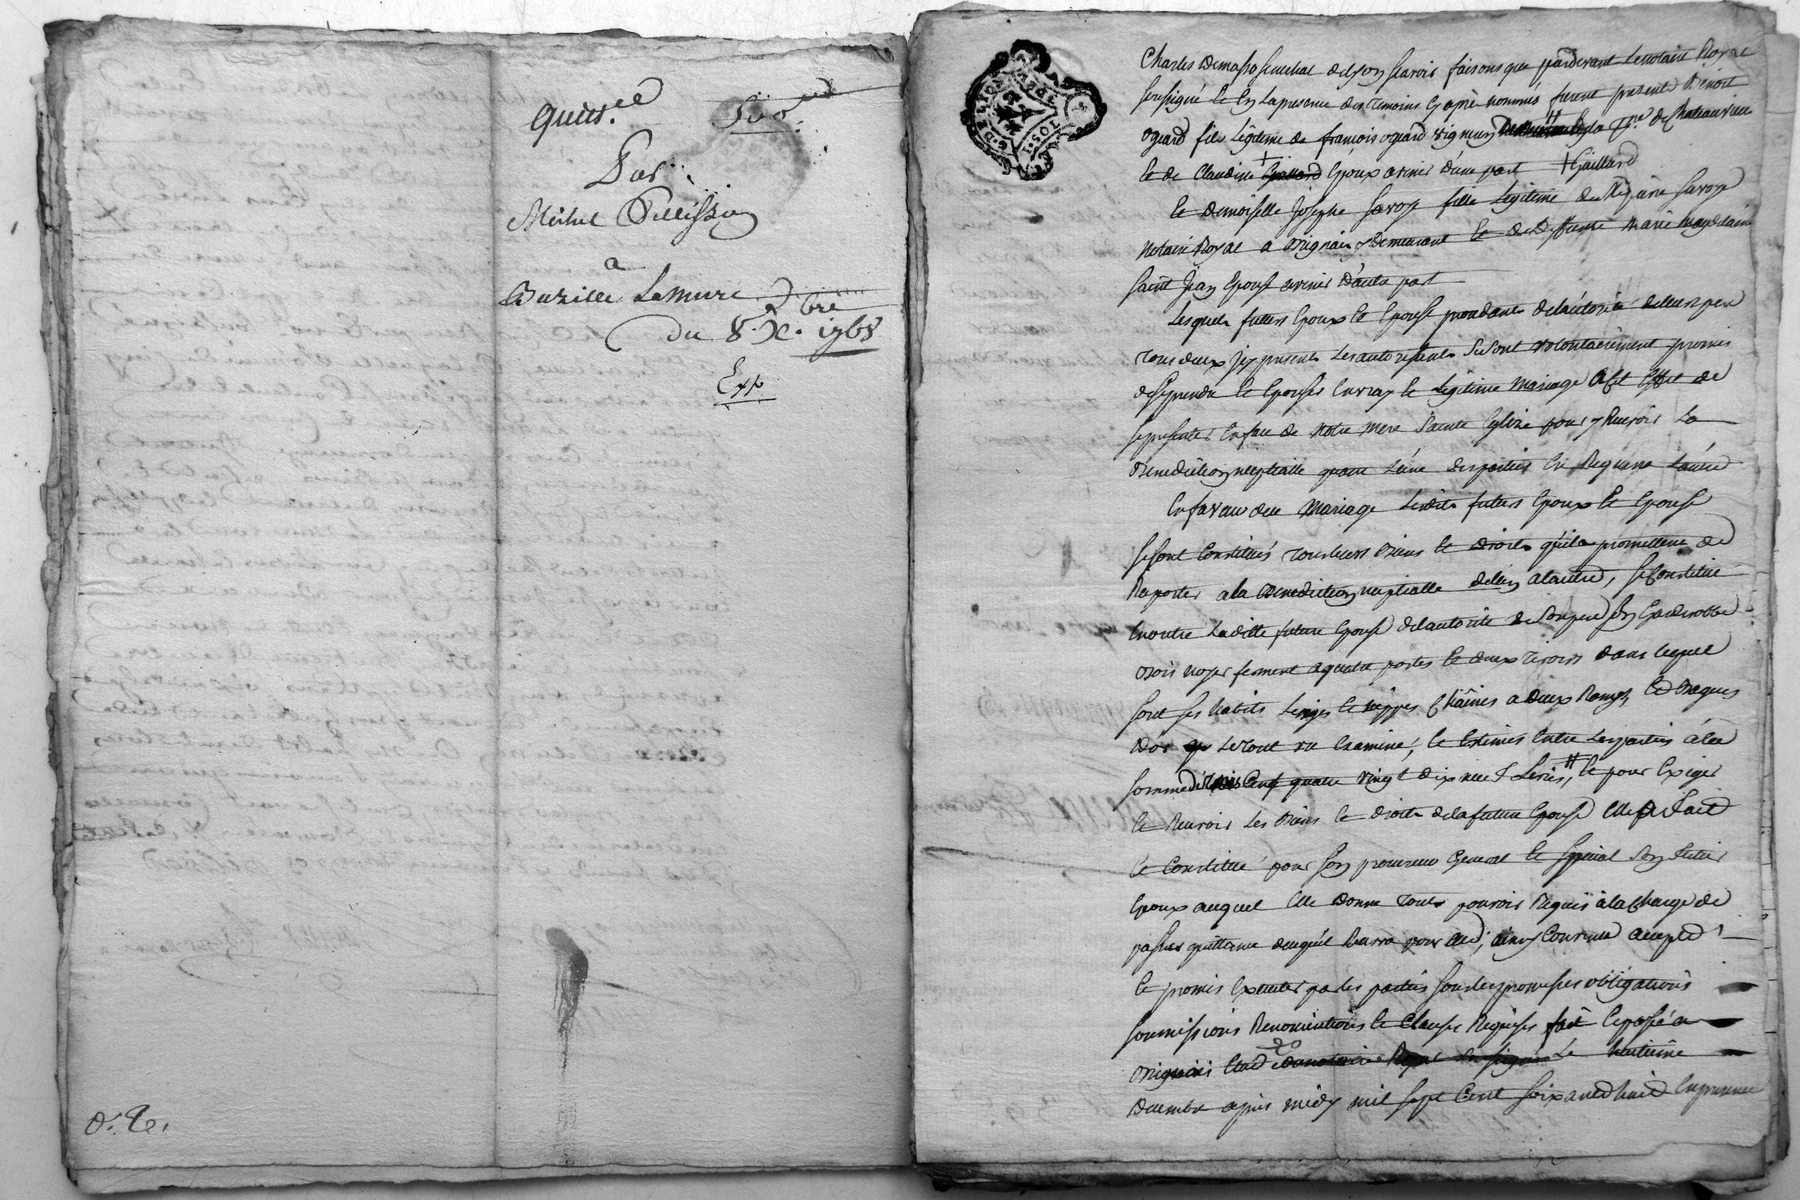 Quitt.ce 500
Par
Michel Pellisson
a
Buzille Lamure
du 8. Xbre 1768
Exp
Charles Demasso senechal de Lyon scavoir faisons que pardevant Le notaire Royal
soussigné Et En La presence des temoins Cy après nommés furent present Benoit
ogiard fils Légitime de françois ogiard vigneron la pse de Chateauvieux
Et de Claudine Epoux avenir d'une part + Gaillard
Et Demoiselle Josephe Savoye fille Legitime de Savoye
Notaire Royal a y Demeurant Et de Deffunte Marie Magdelaine
Saint Jean Epouse avenir D'autre part
Lesquels futurs Epoux Et Epouse procedants de L'autorité de Leurs pere
tous deux Icy presents Les autorisants Se sont volontairement promis
de Se prendre Et Epouser En vray Et Légitime Mariage A Cet Effet de
se presenter En face de Notre Mere Sainte Eglize pour y Recevoir La
Bénédiction nuptialle quand L'une des parties En Requerra L'autre
En faveur du Mariage Lesdits futurs Epoux Et Epouse
se sont Constitués tous Leurs Biens Et Droits qu'ils promettent de
Raporter a la Bénédiction nuptialle de L'un a L'autre, se Constitue
En outre Laditte future Epouse de L'autorité de Son pere Un Garderobbe
Bois noyer fermant a quatre portes Et deux tiroirs dans Lequel
sont ses habits Linges Et nippes Chaines a Deux Rangs, Et Bagues
D'or Le tout vu Examiné, Et Estimés Entre Les parties a la
somme de Cent quatre vingt dix neuf Livres, Et pour Exiger
Et Recevoir Les Biens Et Droits de la future Epouse Elle a Fait
Et Constitué pour Son procureur General Et Special Son futur
Epoux auquel Elle Donne touts pouvoirs Requis a la Charge de
passer quittance de ce qu'il Recevra pour Elle, ainsy Convenu accepté
Et promis Executer par les parties sous Les promesses obligations
soumissions Renonciations Et Clauses Requises fait Et passé a
Etude Le huitieme
Decembre après midy mil Sept Cent Soixante huit En presence